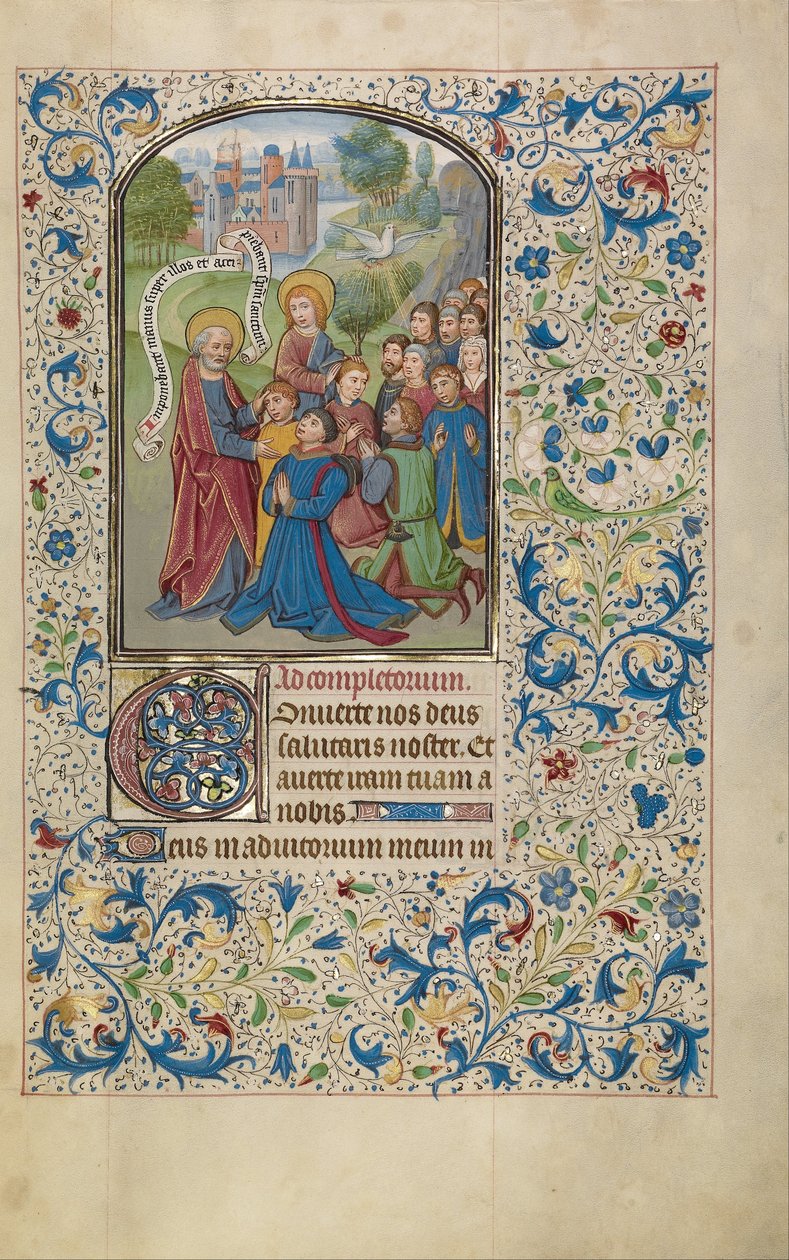 Imponebant manus super illos et acci
piebant spiritum sanctum
Ad completorium.
Onuerte nos deus
salutaris noster. Et
auerte iram tuam a
nobis.
Deus in adiutorium meum in